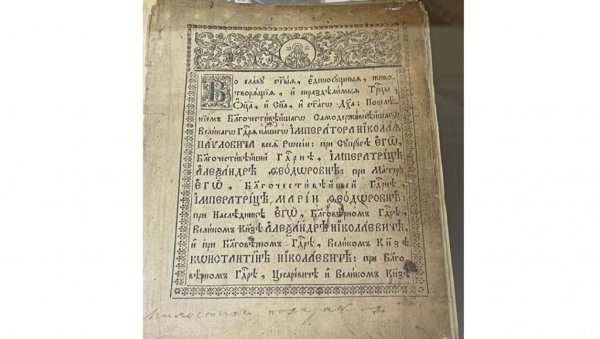 Во славу ст҃ыѧ, единосꙋщныѧ, живо-
творѧщїѧ, и нераздѣлимыѧ Трⷪ҇цы,
Ѻц҃а, и Сн҃а, и ст҃агѡ Дх҃а: Повелѣ-
нїемъ Благочестивѣйшагѡ Самодержавнѣйшагѡ
Великагѡ Гдⷭ҇рѧ нашегѡ ІМПЕРАТОРА НІКОЛАѦ
ПАѴЛОВИЧА всеѧ Рѡссїи: при Сꙋпрꙋгѣ ЕГѠ,
Благочестивѣйшей Гдⷭ҇рнѣ, ІМПЕРАТРИЦѢ
АЛЕѮАНДРѢ ѲЕОДѠРОВНѢ: при Матери
ЕГѠ, Благочестивѣйшей Гдⷭ҇рнѣ,
ІМПЕРАТРИЦѢ МАРІИ ѲЕОДѠРОВНѢ:
при Наслѣдникѣ ЕГѠ, Благовѣрномъ Гдⷭ҇рѣ,
Великомъ Кнѧзѣ АЛЕѮАНДРѢ НІКОЛАЕВИЧѢ,
и при Благовѣрномъ Гдⷭ҇рѣ, Великомъ Кнѧзѣ
КѠНСТАНТІНѢ НІКОЛАЕВИЧѢ: при Благо-
вѣрномъ Гдⷭ҇рѣ, Цесаревичѣ и Великомъ Кнѧзѣ